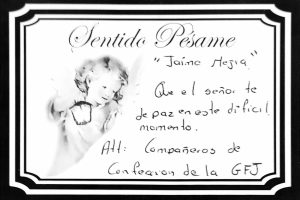 Sentido Pésame
"Jaime Mejia"
Que el señor te
de paz en este dificil
momento.
Att: Compañeros de
Confeccion de la GFJ